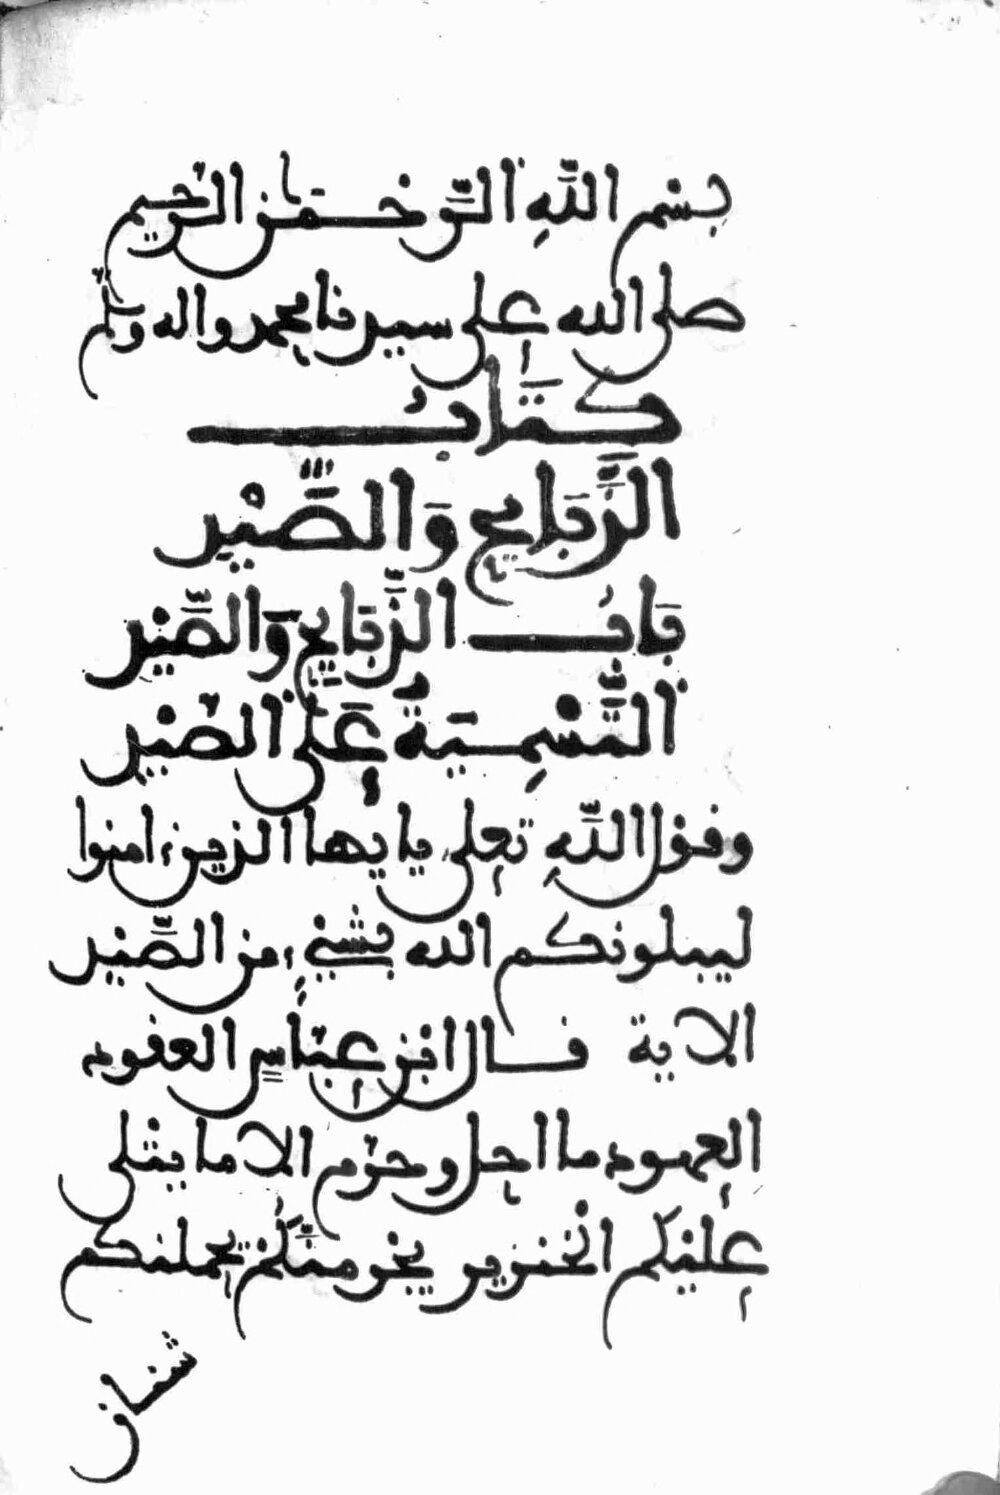 بِسْمِ اللَّهِ الرَّحْمَنِ الرَّحِيمِ
صلى الله على سيدنا محمد واله وسلم
كِتَابُ
الذَّبَايِحِ وَالصَّيْدِ
بَابُ الذَّبَايِحِ وَالصَّيْدِ
التَّسْمِيَةُ عَلَى الصَّيْدِ
وقول اللَّهِ تعلى يايها الذين ءامنوا
ليبلونكم الله بشيء من الصَّيْد
الاية قال ابن عبَّاس العقود
العهود ما احل وحرم الا ما يتلى
عليكم الخنزير يجرمنَّكم يحملنكم
شنئان